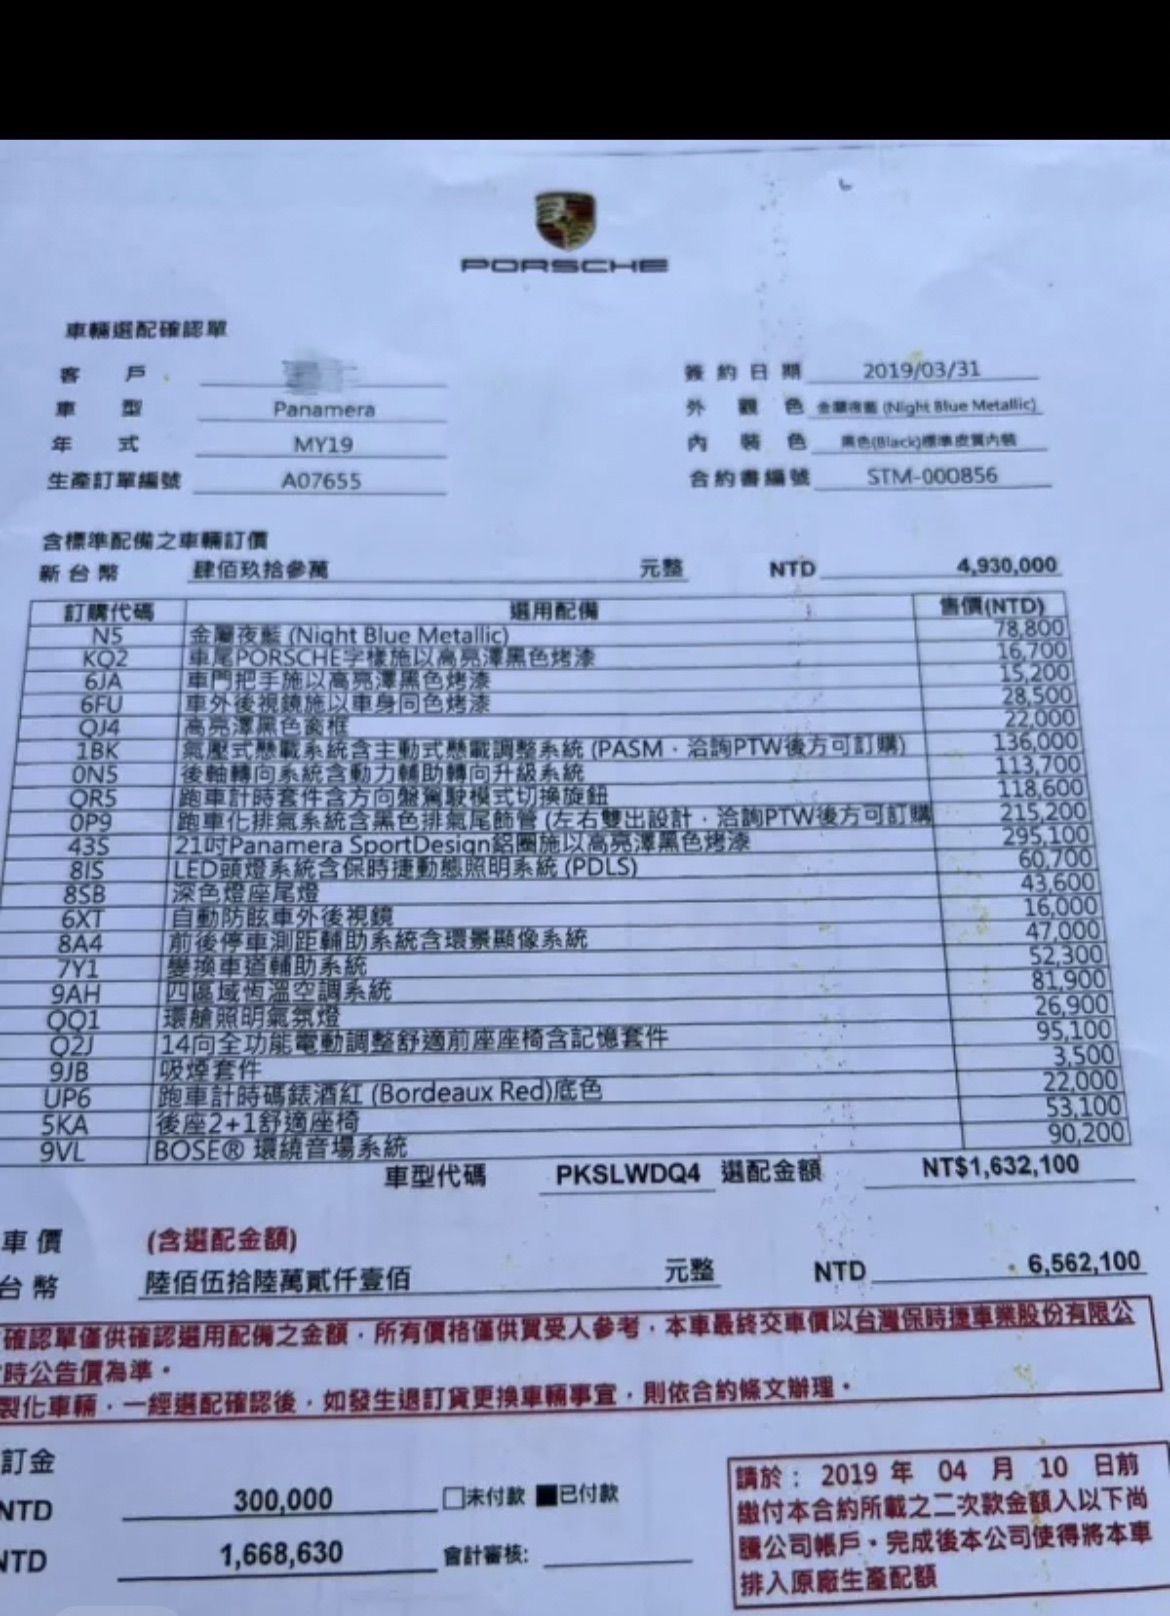 PORSCHE
車輛選配確認單
客 戶
簽約日期 2019/03/31
車 型 Panamera
外觀色 金屬夜藍 (Night Blue Metallic)
年 式 MY19
內裝色 黑色(Black)標準皮質內裝
生產訂單編號 A07655
合約書編號 STM-000856
含標準配備之車輛訂價
新台幣 肆佰玖拾參萬 元整 NTD 4,930,000
訂購代碼 選用配備 售價(NTD)
N5 金屬夜藍 (Night Blue Metallic) 78,800
KQ2 車尾PORSCHE字樣施以高亮澤黑色烤漆 16,700
6JA 車門把手施以高亮澤黑色烤漆 15,200
6FU 車外後視鏡施以車身同色烤漆 28,500
QJ4 高亮澤黑色窗框 22,000
1BK 氣壓式懸載系統含主動式懸載調整系統 (PASM，洽詢PTW後方可訂購) 136,000
0N5 後軸轉向系統含動力輔助轉向升級系統 113,700
QR5 跑車計時套件含方向盤駕駛模式切換旋鈕 118,600
0P9 跑車化排氣系統含黑色排氣尾飾管 (左右雙出設計，洽詢PTW後方可訂購 215,200
43S 21吋Panamera SportDesign鋁圈施以高亮澤黑色烤漆 295,100
8IS LED頭燈系統含保時捷動態照明系統 (PDLS) 60,700
8SB 深色燈座尾燈 43,600
6XT 自動防眩車外後視鏡 16,000
8A4 前後停車測距輔助系統含環景顯像系統 47,000
7Y1 變換車道輔助系統 52,300
9AH 四區域恆溫空調系統 81,900
QQ1 環艙照明氣氛燈 26,900
Q2J 14向全功能電動調整舒適前座座椅含記憶套件 95,100
9JB 吸煙套件 3,500
UP6 跑車計時碼錶酒紅 (Bordeaux Red)底色 22,000
5KA 後座2+1舒適座椅 53,100
9VL BOSE® 環繞音場系統 90,200
車型代碼 PKSLWDQ4 選配金額 NT$1,632,100
車價 (含選配金額)
台幣 陸佰伍拾陸萬貳仟壹佰 元整 NTD 6,562,100
確認單僅供確認選用配備之金額，所有價格僅供買受人參考，本車最終交車價以台灣保時捷車業股份有限公
時公告價為準。
製化車輛，一經選配確認後，如發生退訂貨更換車輛事宜，則依合約條文辦理。
訂金
NTD 300,000 □未付款 ■已付款
NTD 1,668,630 會計審核:
請於： 2019 年 04 月 10 日前
繳付本合約所載之二次款金額入以下尚
騰公司帳戶，完成後本公司使得將本車
排入原廠生產配額